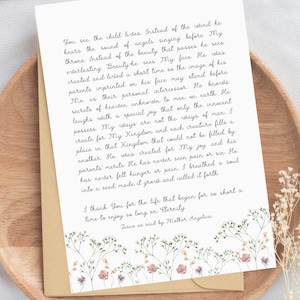 You see, the child lives. Instead of the wind he
hears the sound of angels singing before My
throne. Instead of the beauty that passes he sees
everlasting Beauty-he sees My face. He was
created and lived a short time so the image of his
parents imprinted on his face may stand before
Me as their personal intercessor. He knows
secrets of heaven unknown to men on earth. He
laughs with a special joy that only the innocent
possess. My ways are not the ways of man. I
create for My Kingdom and each creature fills a
place in that Kingdom that could not be filled by
another. He was created for My joy and his
parents' merits. He has never seen pain or sin. He
has never felt hunger or pain. I breathed a soul
into a seed, made it grow and called it forth.
I thank You for the life that began for so short a
time to enjoy so long an Eternity.
Jesus as said by Mother Angelica